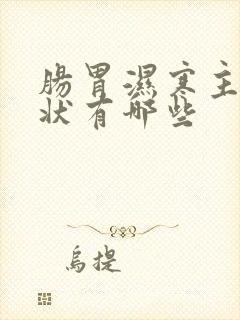 腸胃濕寒主
狀有哪些
烏提